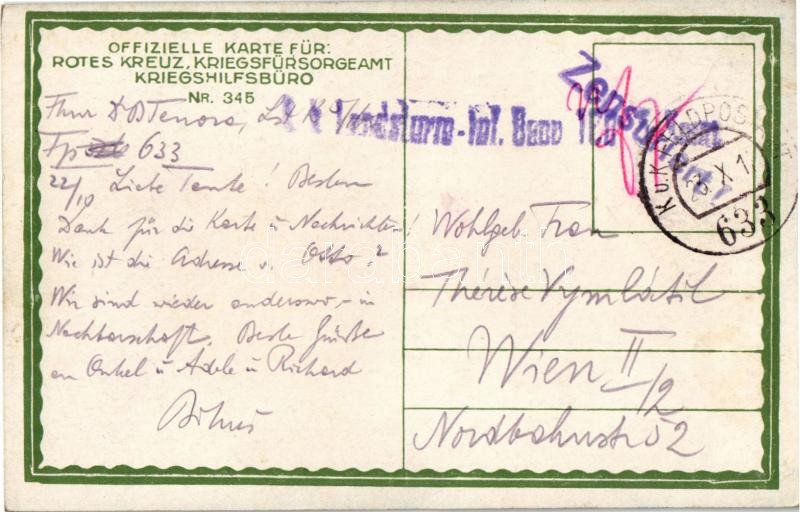 OFFIZIELLE KARTE FÜR:
ROTES KREUZ, KRIEGSFÜRSORGEAMT
KRIEGSHILFSBÜRO
NR. 345
Fp 633
22/10 Liebe Tante! Besten
Dank für die Karte u Nachrichten!
Wie ist die Adresse v. Otto?
Wir sind wieder anderswo, – in
Nachbarschaft. Beste Grüße
an Onkel u Adele u Richard
Landsturm-Inf. Baon
Zensuriert!
K.u.K. FELDPOSTAMT
X 1
633
Wohlgeb Frau
Thérèse Vymlátil
Wien II/2
Nordbahnstr 52